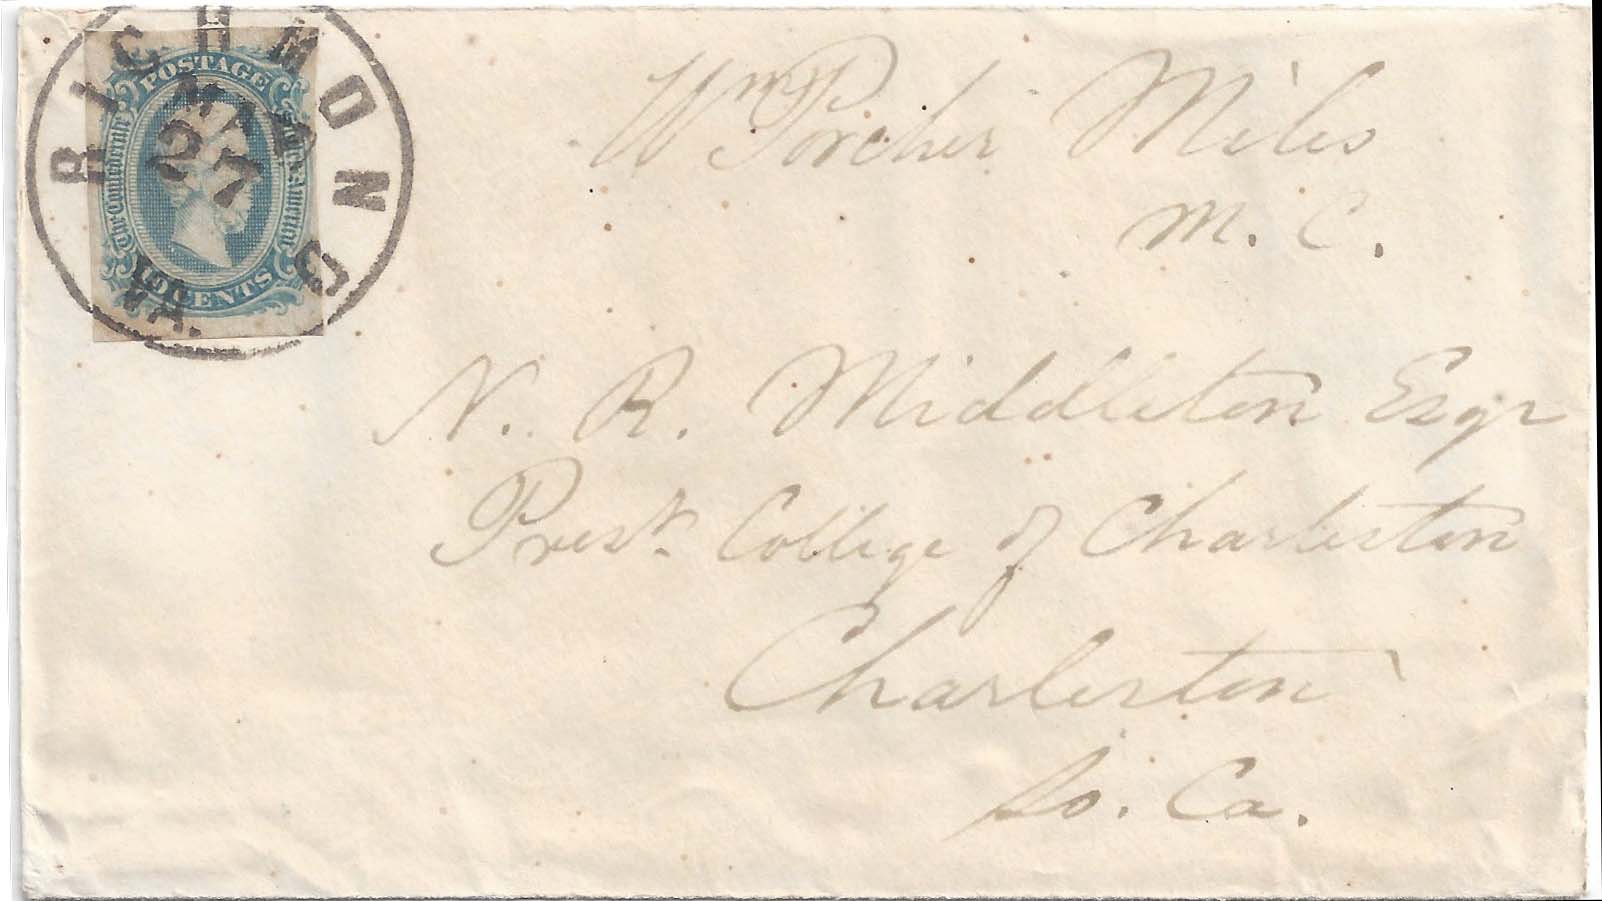 RICHMOND
VA.
MAR
27
POSTAGE
The Confederate States of America
10 CENTS
Wm Porcher Miles
M. C.
N. R. Middleton Esqr
Prest. College of Charleston
Charleston
So. Ca.